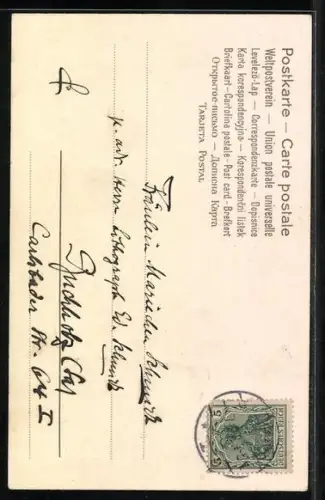 Postkarte — Carte postale
Weltpostverein — Union postale universelle
Levelező-Lap — Correspondenzkarte — Dopisnice
Karta korespondencyjna — Korespondentni listek
Briefkaart - Cartolina postale - Post card - Brefkort
Открытое письмо — Дописна Карта
TARJETA POSTAL
Fräulein Mariechen Schmidt
p. adr. Herrn Lithograph Ed. Schmidt
Buchholz
Carlsbader Str. 64 I
5 5